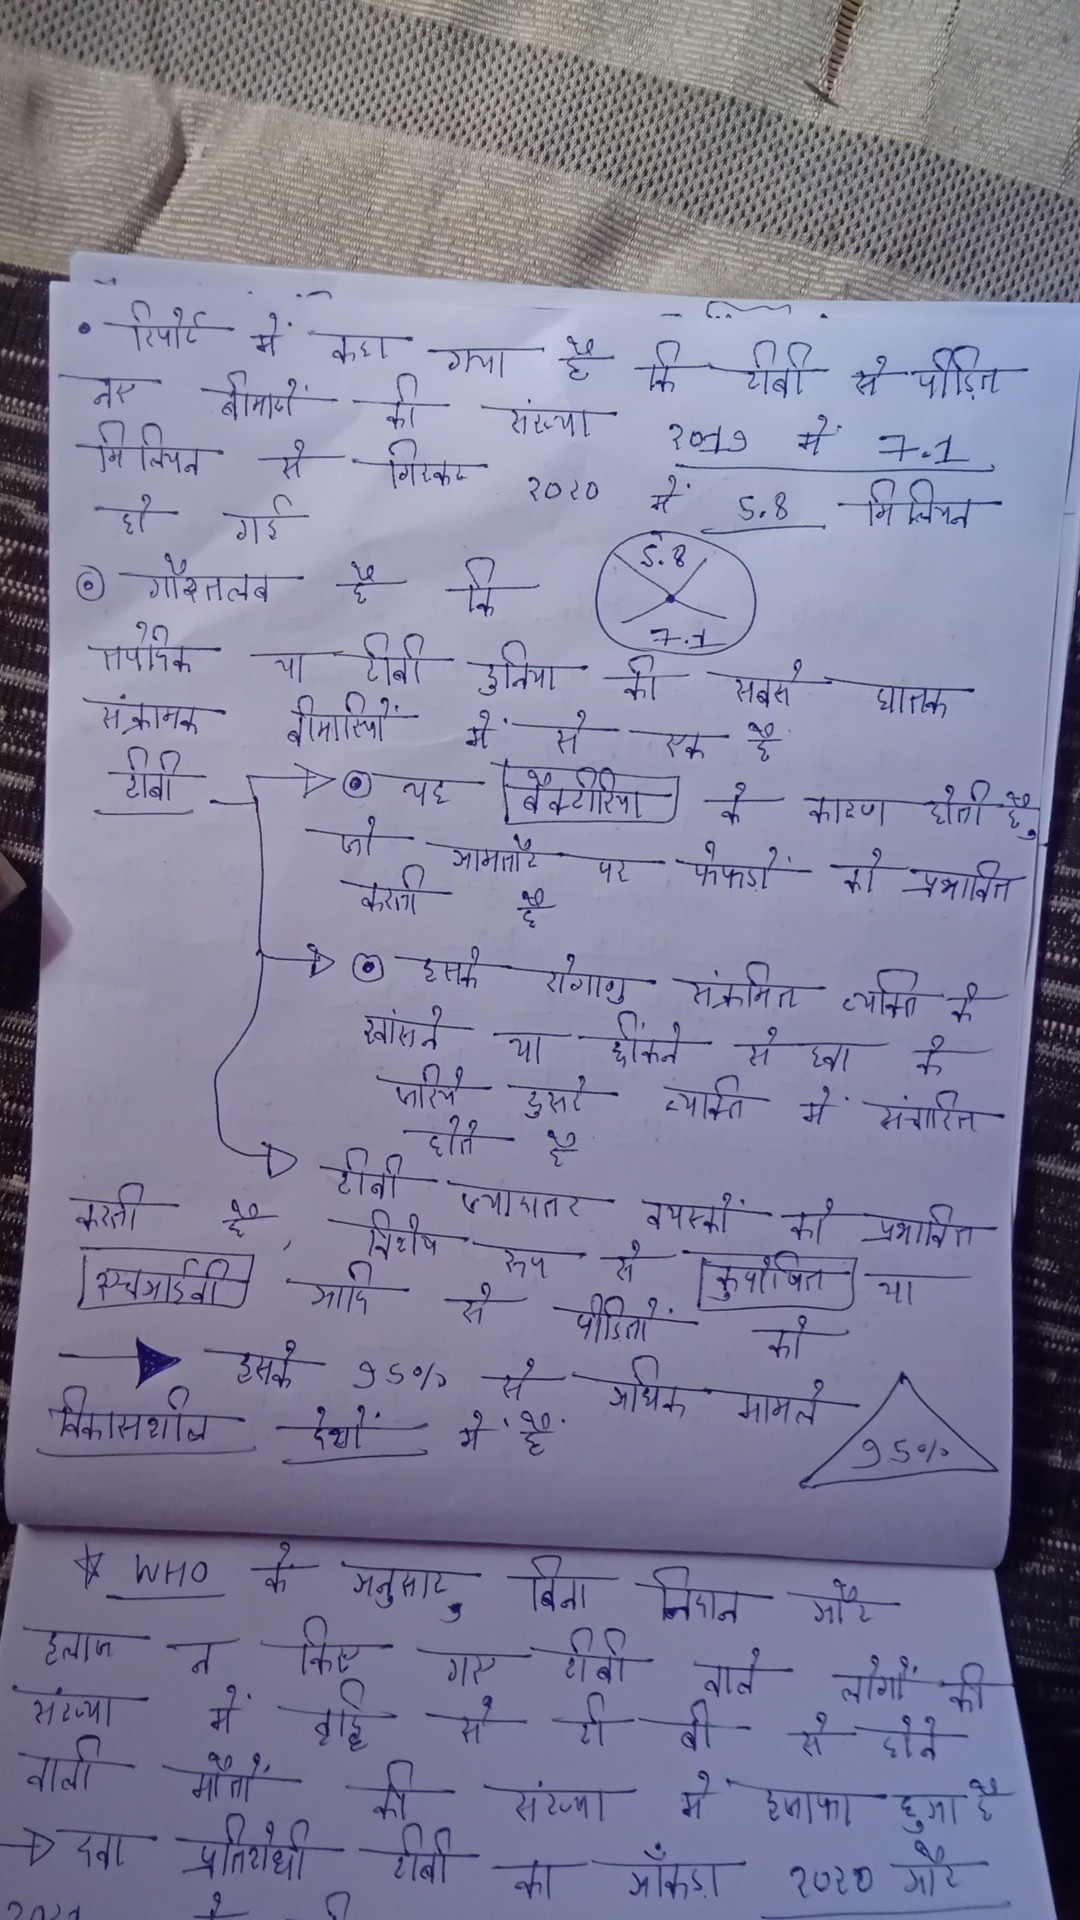 • रिपोर्ट में कहा गया है कि टीबी से पीड़ित
नए बीमारों की संख्या २०19 में 7.1
मिलियन से गिरकर २०२० में 5.8 मिलियन
हो गई
5.8
⊙ गौरतलब है कि
7.1
तपेदिक या टीबी दुनिया की सबसे घातक
संक्रामक बीमारियों में से एक है
टीबी → ⊙ यह बैक्टीरिया के कारण होती है,
जो आमतौर पर फेफड़ों को प्रभावित
करती है
→ ⊙ इसके रोगाणु संक्रमित व्यक्ति के
खांसने या छींकने से हवा के
जरिये दुसरे व्यक्ति में संचारित
होते है
→ टीबी ज्यादातर वयस्कों को प्रभावित
करती है, विशेष रूप से कुपोषित या
एचआईवी आदि से पीडितों को
→ इसके 95% से अधिक मामले
विकासशील देशों में है.
95%
★ WHO के अनुसार, बिना निदान और
इलाज न किए गए टीबी वाले लोगों की
संख्या में वृद्धि से टी बी से होने
वाली मौतों की संख्या में इजाफा हुआ है
→ दवा प्रतिरोधी टीबी का आँकड़ा २०२० और